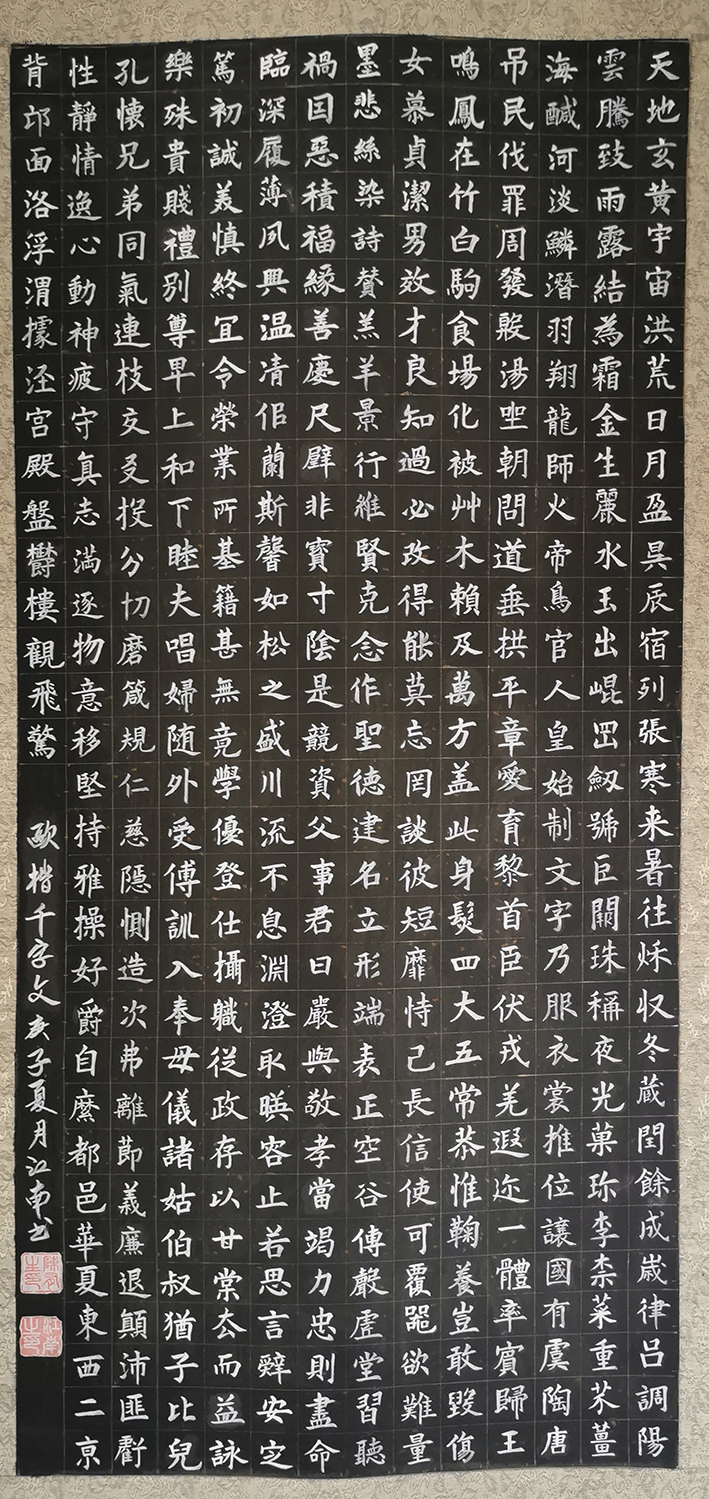 天地玄黃宇宙洪荒日月盈昃辰宿列張寒来暑往秌収冬蔵閏餘成歲律吕調陽
雲騰致雨露結為霜金生麗水玉出崐罡劔號巨闕珠稱夜光菓珎李柰菜重芥薑
海醎河淡鱗潛羽翔龍師火帝鳥官人皇始制文字乃服衣裳推位讓國有虞陶唐
吊民伐罪周發殷湯坐朝問道垂拱平章愛育黎首臣伏戎羌遐迩一體率賓歸王
鳴鳳在竹白駒食場化被艸木賴及萬方盖此身髮四大五常恭惟鞠養豈敢毀傷
女慕貞潔男效才良知過必改得能莫忘罔談彼短靡恃己長信使可覆噐欲難量
墨悲絲染詩贊羔羊景行維賢克念作聖徳建名立形端表正空谷傳聲虛堂習聽
禍因惡積福緣善慶尺璧非寶寸陰是競資父事君曰嚴與敬孝當竭力忠則盡命
臨深履薄夙興温凊佀蘭斯馨如松之盛川流不息淵澄取暎容止若思言辭安定
篤初誠美慎終宜令榮業所基籍甚無竟學優登仕攝職從政存以甘棠去而益詠
樂殊貴賤禮別尊卑上和下睦夫唱婦随外受傅訓入奉母儀諸姑伯叔猶子比兒
孔懷兄弟同氣連枝交友投分切磨箴規仁慈隱惻造次弗離節義廉退顛沛匪虧
性靜情逸心動神疲守真志満逐物意移堅持雅操好爵自縻都邑華夏東西二京
背邙面洛浮渭據涇宫殿盤欝樓觀飛驚
歐楷千字文庚子夏月江南書